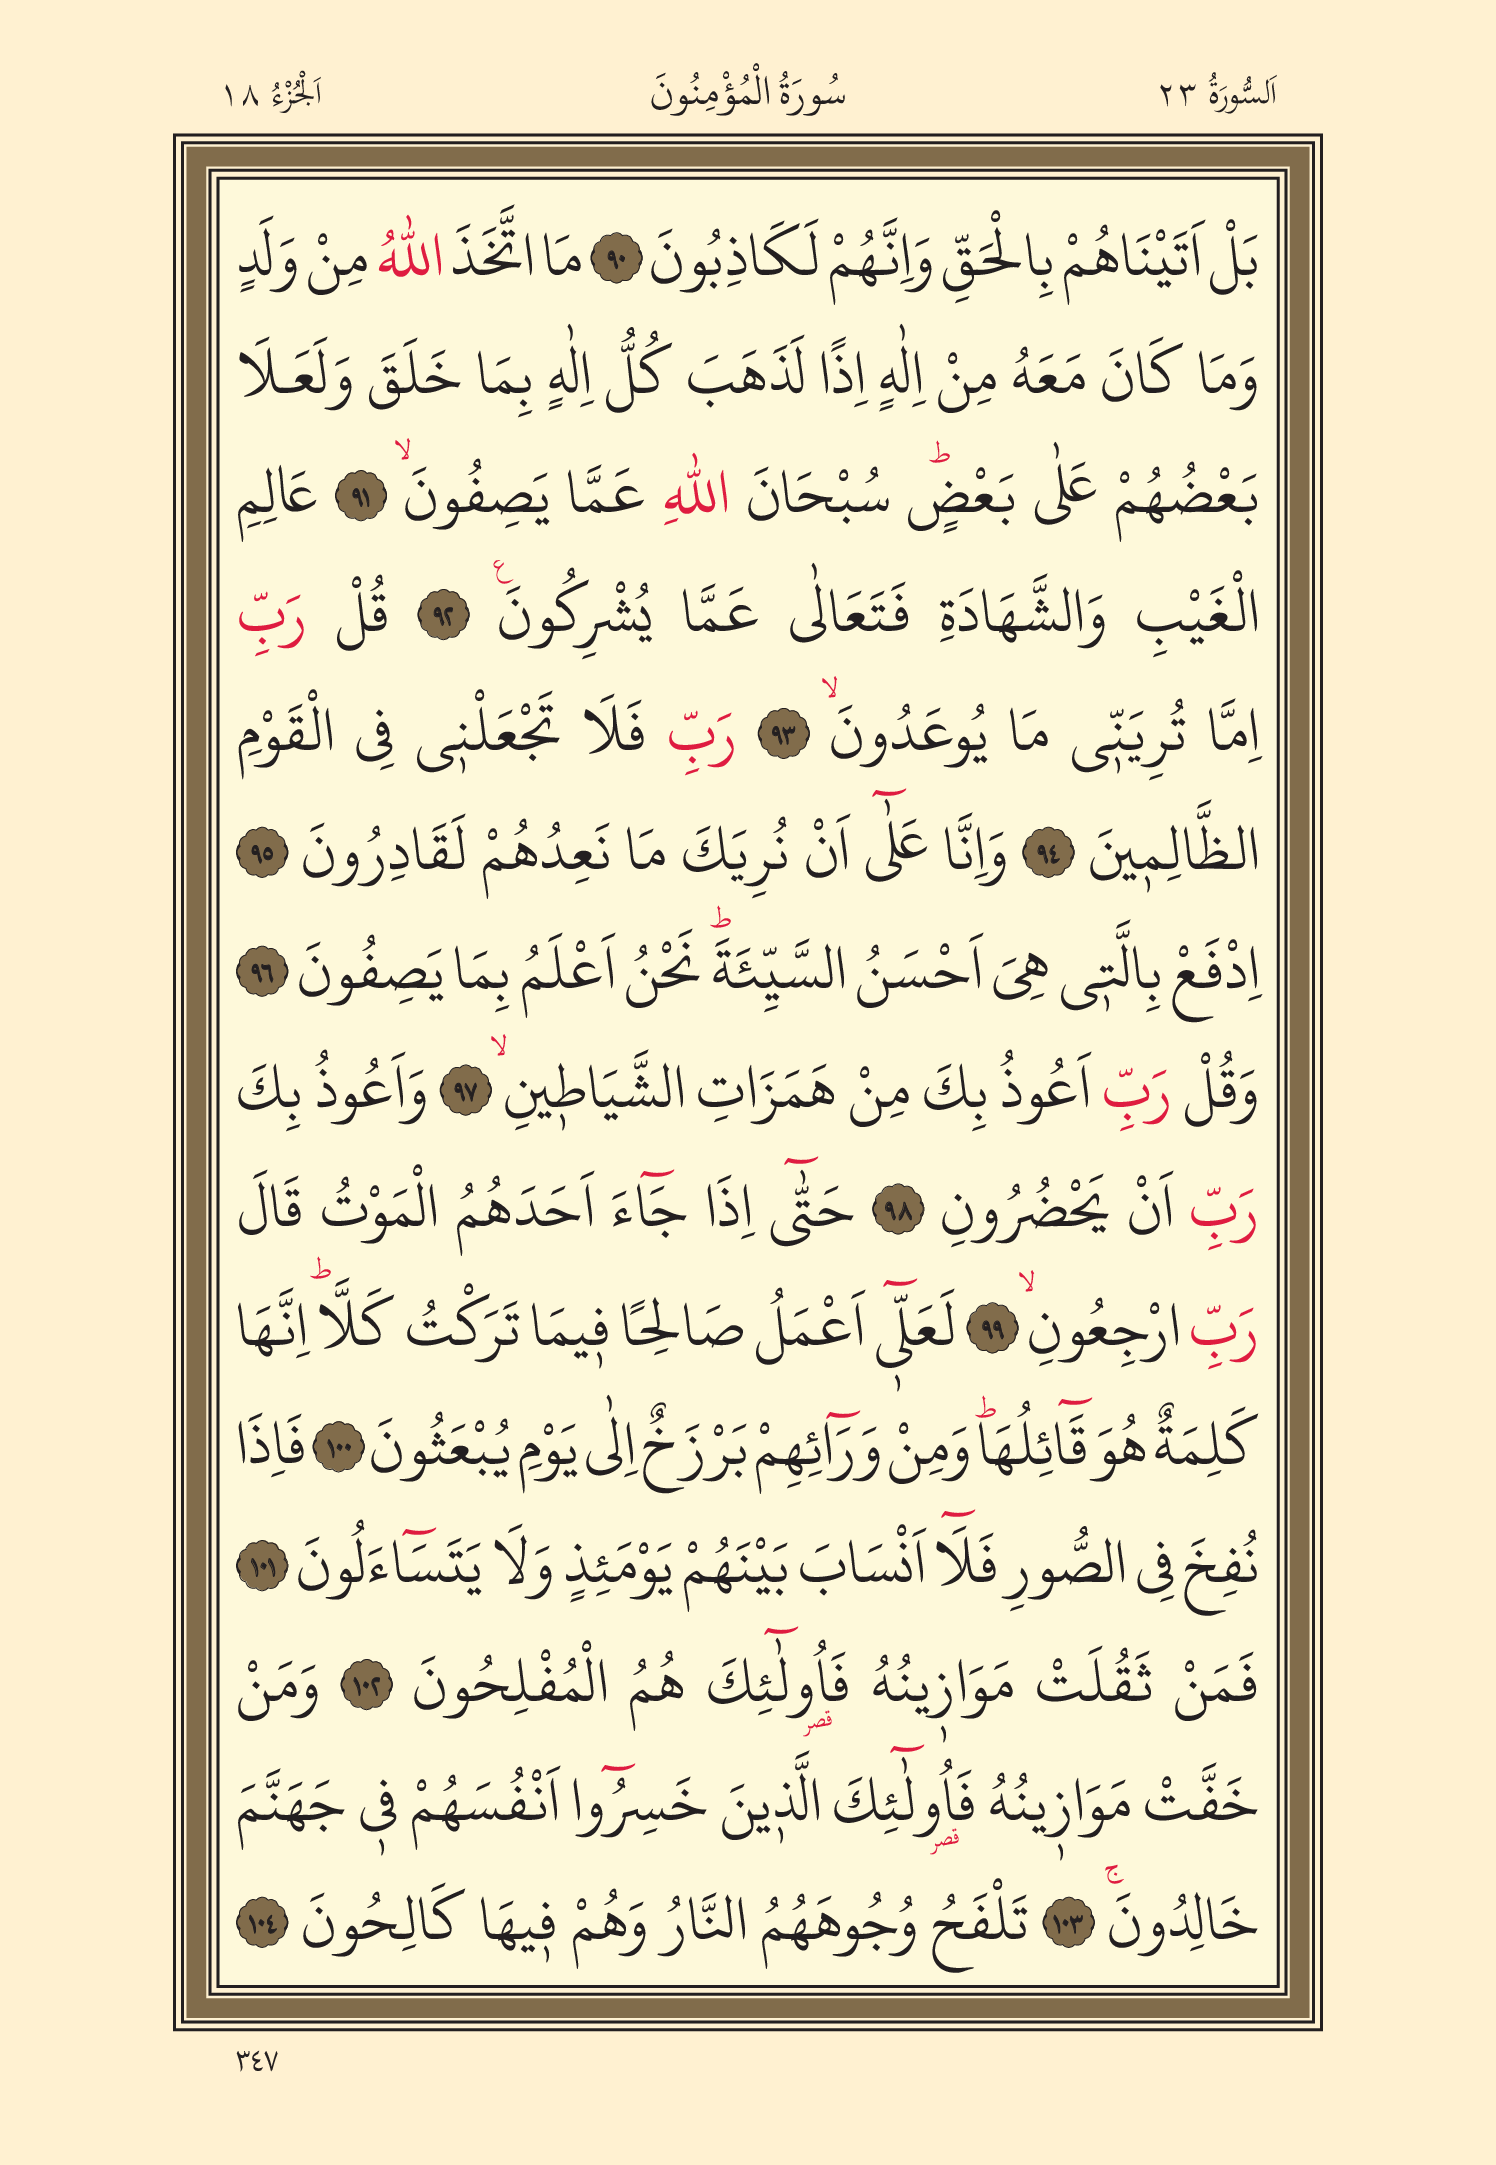 اَلسُّورَةُ ٢٣ سُورَةُ الْمُؤْمِنُونَ اَلْجُزْءُ ١٨
بَلْ اَتَيْنَاهُمْ بِالْحَقِّ وَاِنَّهُمْ لَكَاذِبُونَ ٩٠ مَا اتَّخَذَ اللّٰهُ مِنْ وَلَدٍ
وَمَا كَانَ مَعَهُ مِنْ اِلٰهٍ اِذًا لَذَهَبَ كُلُّ اِلٰهٍ بِمَا خَلَقَ وَلَعَلَا
بَعْضُهُمْ عَلٰى بَعْضٍۜ سُبْحَانَ اللّٰهِ عَمَّا يَصِفُونَۙ ٩١ عَالِمِ
الْغَيْبِ وَالشَّهَادَةِ فَتَعَالٰى عَمَّا يُشْرِكُونَ ع ٩٢ قُلْ رَبِّ
اِمَّا تُرِيَنّ۪ى مَا يُوعَدُونَۙ ٩٣ رَبِّ فَلَا تَجْعَلْن۪ى فِى الْقَوْمِ
الظَّالِم۪ينَ ٩٤ وَاِنَّا عَلٰٓى اَنْ نُرِيَكَ مَا نَعِدُهُمْ لَقَادِرُونَ ٩٥
اِدْفَعْ بِالَّت۪ى هِىَ اَحْسَنُ السَّيِّئَةَۜ نَحْنُ اَعْلَمُ بِمَا يَصِفُونَ ٩٦
وَقُلْ رَبِّ اَعُوذُ بِكَ مِنْ هَمَزَاتِ الشَّيَاط۪ينِۙ ٩٧ وَاَعُوذُ بِكَ
رَبِّ اَنْ يَحْضُرُونِ ٩٨ حَتّٰٓى اِذَا جَٓاءَ اَحَدَهُمُ الْمَوْتُ قَالَ
رَبِّ ارْجِعُونِۙ ٩٩ لَعَلّ۪ٓى اَعْمَلُ صَالِحًا ف۪يمَا تَرَكْتُ كَلَّاۜ اِنَّهَا
كَلِمَةٌ هُوَ قَٓائِلُهَاۜ وَمِنْ وَرَٓائِهِمْ بَرْزَخٌ اِلٰى يَوْمِ يُبْعَثُونَ ١٠٠ فَاِذَا
نُفِخَ فِى الصُّورِ فَلَٓا اَنْسَابَ بَيْنَهُمْ يَوْمَئِذٍ وَلَا يَتَسَٓاءَلُونَ ١٠١
فَمَنْ ثَقُلَتْ مَوَاز۪ينُهُ فَاُو۬لٰٓئِكَ قصر هُمُ الْمُفْلِحُونَ ١٠٢ وَمَنْ
خَفَّتْ مَوَاز۪ينُهُ فَاُو۬لٰٓئِكَ قصر الَّذ۪ينَ خَسِرُٓوا اَنْفُسَهُمْ ف۪ى جَهَنَّمَ
خَالِدُونَۚ ١٠٣ تَلْفَحُ وُجُوهَهُمُ النَّارُ وَهُمْ ف۪يهَا كَالِحُونَ ١٠٤
٣٤٧